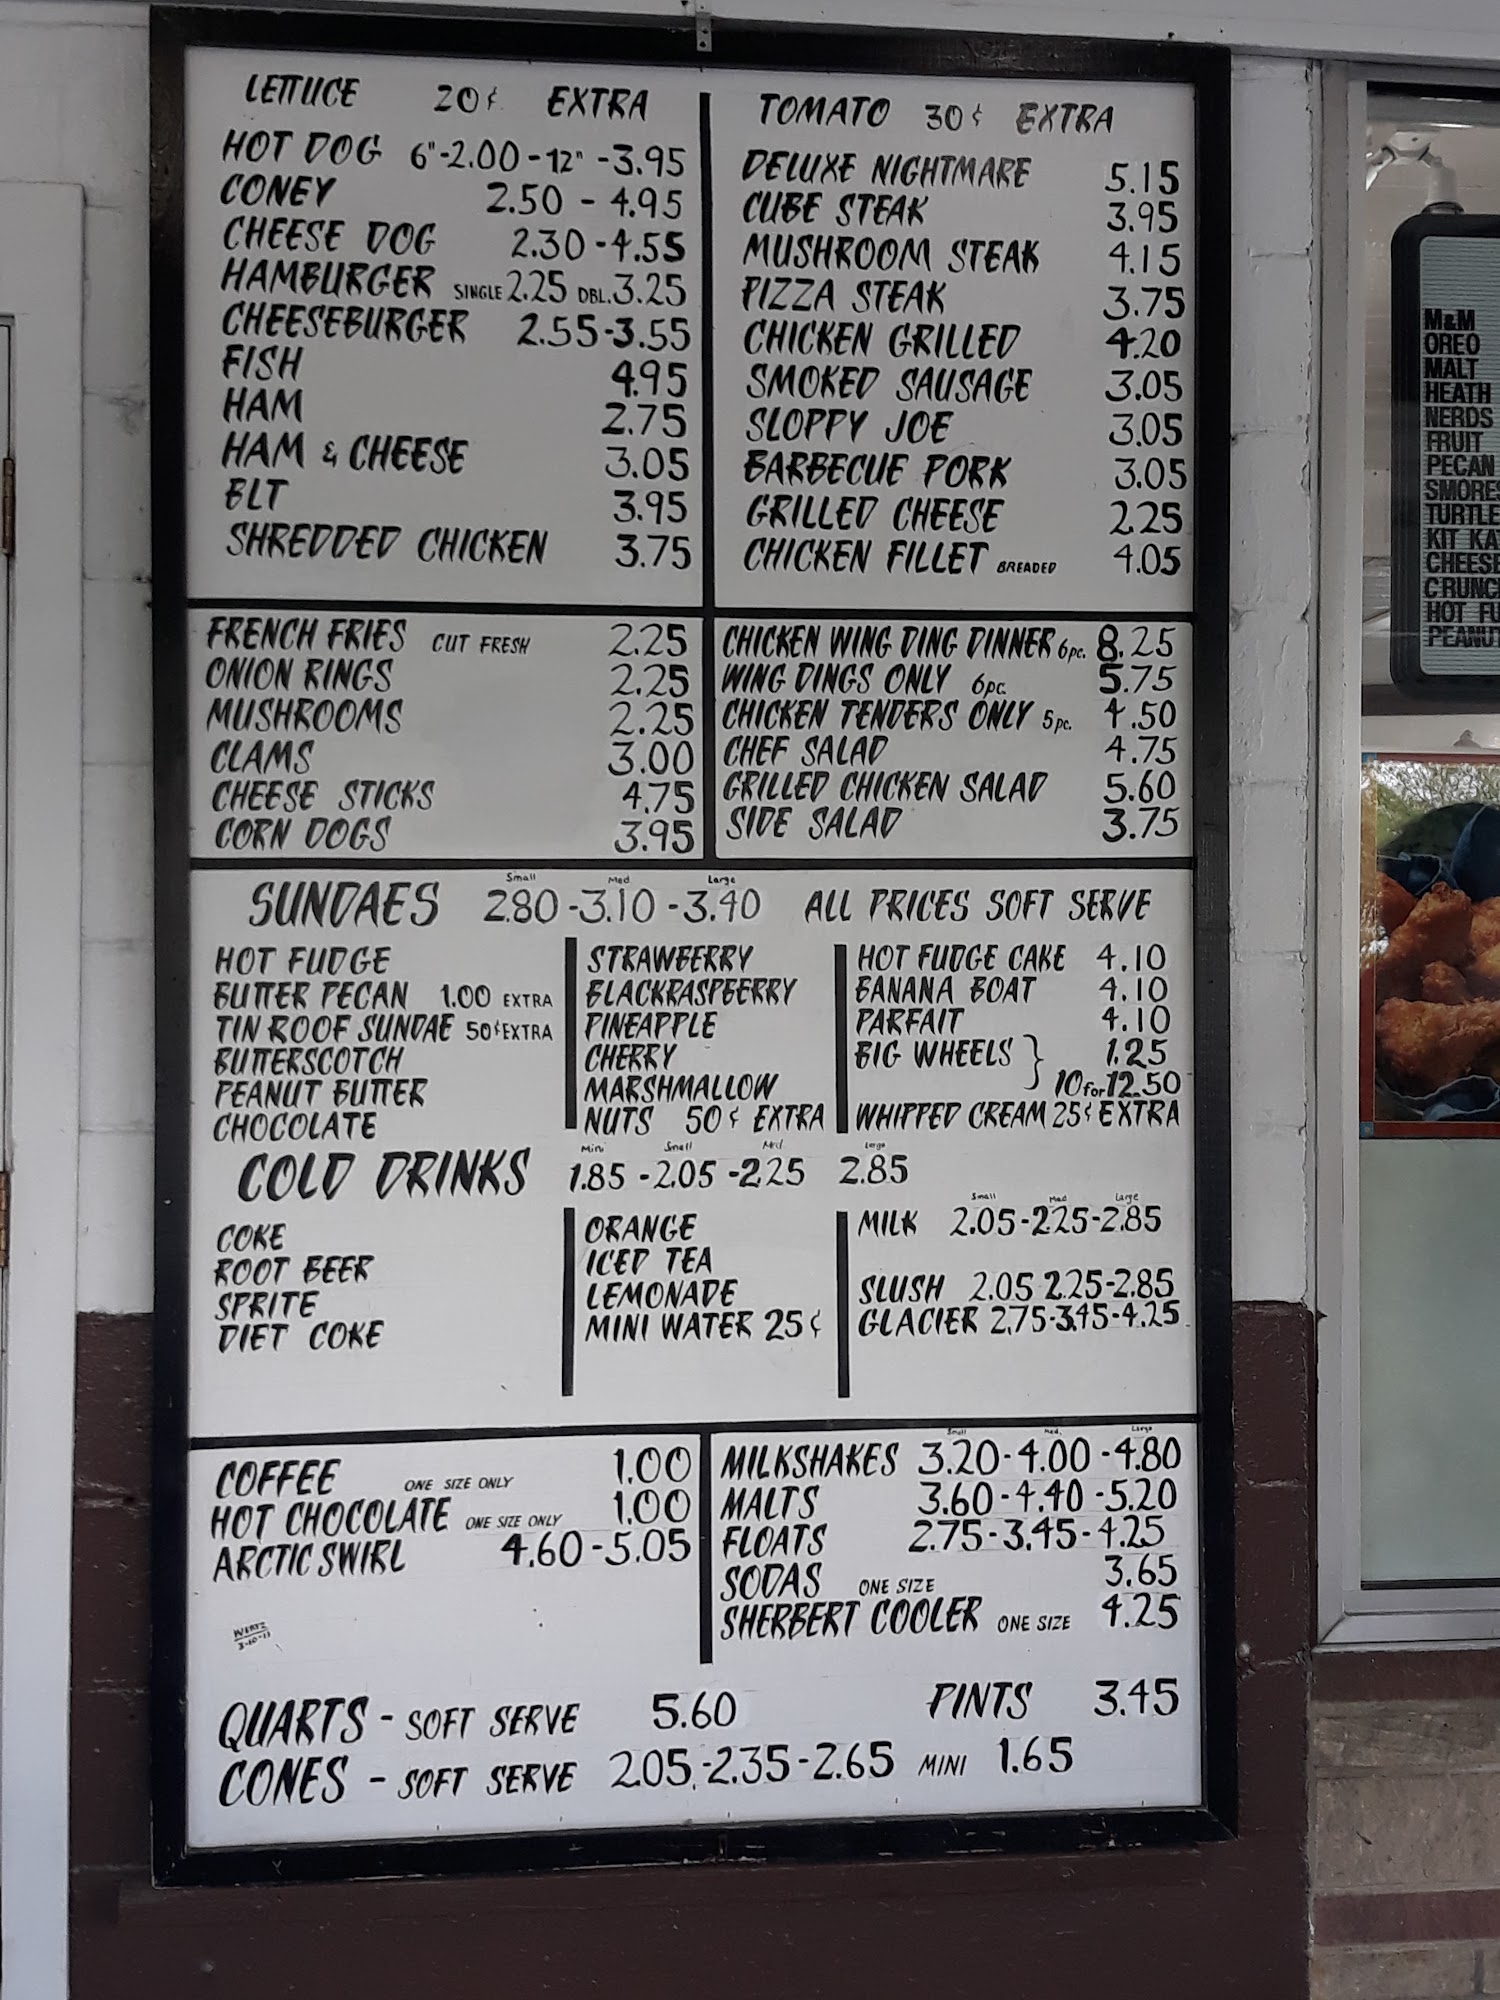 LETTUCE 20¢ EXTRA
HOT DOG 6"-2.00-12"-3.95
CONEY 2.50 - 4.95
CHEESE DOG 2.30-4.55
HAMBURGER SINGLE 2.25 DBL. 3.25
CHEESEBURGER 2.55-3.55
FISH 4.95
HAM 2.75
HAM & CHEESE 3.05
BLT 3.95
SHREDDED CHICKEN 3.75
TOMATO 30¢ EXTRA
DELUXE NIGHTMARE 5.15
CUBE STEAK 3.95
MUSHROOM STEAK 4.15
PIZZA STEAK 3.75
CHICKEN GRILLED 4.20
SMOKED SAUSAGE 3.05
SLOPPY JOE 3.05
BARBECUE PORK 3.05
GRILLED CHEESE 2.25
CHICKEN FILLET BREADED 4.05
FRENCH FRIES CUT FRESH 2.25
ONION RINGS 2.25
MUSHROOMS 2.25
CLAMS 3.00
CHEESE STICKS 4.75
CORN DOGS 3.95
CHICKEN WING DING DINNER 6pc. 8.25
WING DINGS ONLY 6pc. 5.75
CHICKEN TENDERS ONLY 5pc. 4.50
CHEF SALAD 4.75
GRILLED CHICKEN SALAD 5.60
SIDE SALAD 3.75
Small Med Large
SUNDAES 2.80-3.10-3.40 ALL PRICES SOFT SERVE
HOT FUDGE
BUTTER PECAN 1.00 EXTRA
TIN ROOF SUNDAE 50¢ EXTRA
BUTTERSCOTCH
PEANUT BUTTER
CHOCOLATE
STRAWBERRY
BLACKRASPBERRY
PINEAPPLE
CHERRY
MARSHMALLOW
NUTS 50¢ EXTRA
HOT FUDGE CAKE 4.10
BANANA BOAT 4.10
PARFAIT 4.10
BIG WHEELS } 1.25
10 for 12.50
WHIPPED CREAM 25¢ EXTRA
Mini Small Med Large
COLD DRINKS 1.85-2.05-2.25 2.85
COKE
ROOT BEER
SPRITE
DIET COKE
ORANGE
ICED TEA
LEMONADE
MINI WATER 25¢
Small Med Large
MILK 2.05-2.25-2.85
SLUSH 2.05 2.25-2.85
GLACIER 2.75-3.45-4.25
COFFEE ONE SIZE ONLY 1.00
HOT CHOCOLATE ONE SIZE ONLY 1.00
ARCTIC SWIRL 4.60-5.05
WERTZ
3-10-11
Small Med. Large
MILKSHAKES 3.20-4.00-4.80
MALTS 3.60-4.40-5.20
FLOATS 2.75-3.45-4.25
SODAS ONE SIZE 3.65
SHERBERT COOLER ONE SIZE 4.25
QUARTS - SOFT SERVE 5.60 PINTS 3.45
CONES - SOFT SERVE 2.05-2.35-2.65 MINI 1.65
M&M
OREO
MALT
HEATH
NERDS
FRUIT
PECAN
SMORES
TURTLE
KIT KA
CHEESE
CRUNC
HOT FU
PEANUT